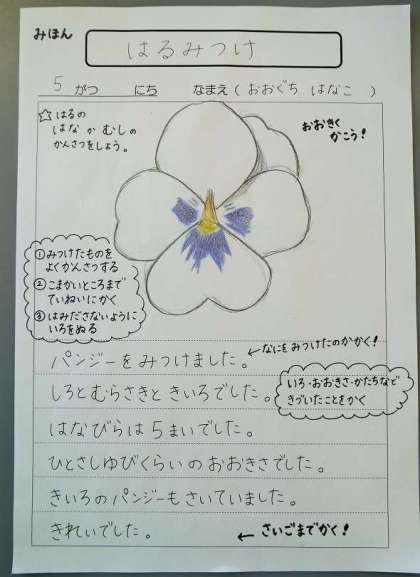 みほん
はるみつけ
5 がつ にち なまえ ( おおぐち はなこ )
☆はるの
はな か むしの
かんさつをしよう。
おおきく
かこう!
① みつけたものを
よくかんさつする
② こまかいところまで
ていねいにかく
③ はみださないように
いろをぬる
パンジーをみつけました。
←なにをみつけたのかかく!
しろとむらさきときいろでした。
いろ・おおきさ・かたちなど
きづいたことをかく
はなびらは5まいでした。
ひとさしゆびくらいのおおきさでした。
きいろのパンジーもさいていました。
きれいでした。
←さいごまでかく!